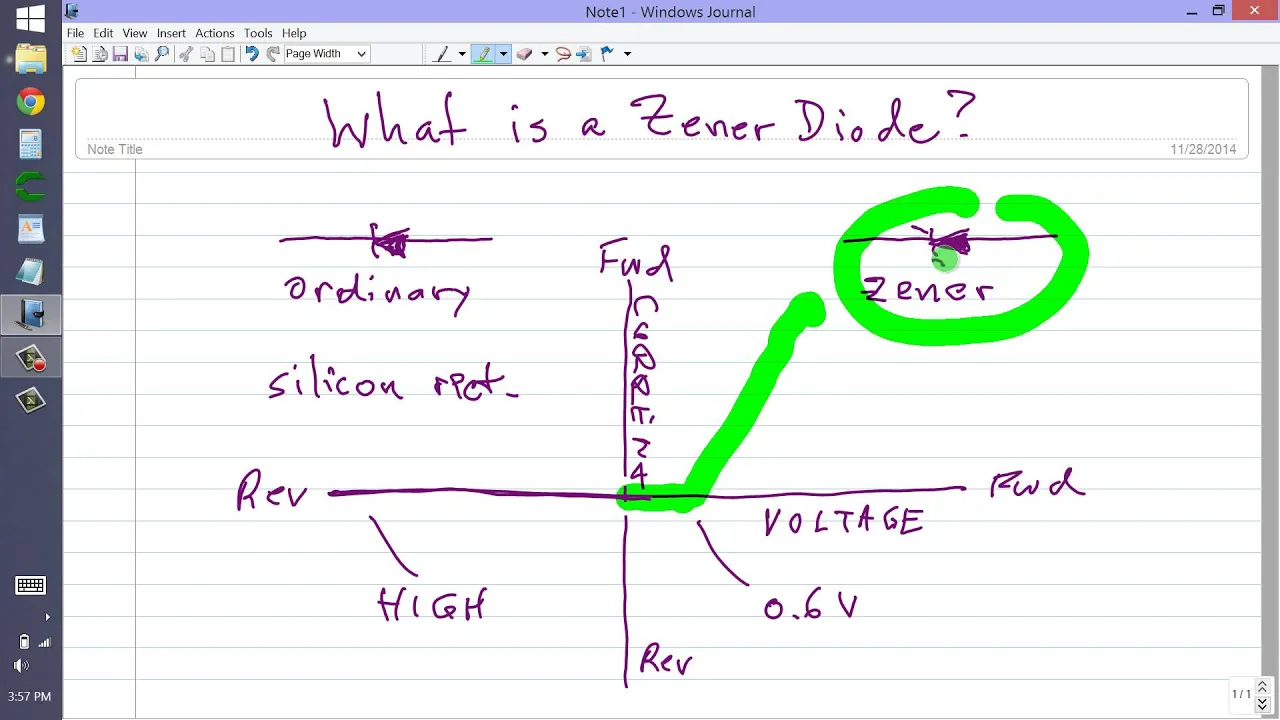 Note1 - Windows Journal
File Edit View Insert Actions Tools Help
Page Width
What is a Zener Diode?
Note Title
11/28/2014
ordinary
Fwd
Zener
silicon rect.
Rev
Fwd
VOLTAGE
HIGH
0.6 V
Rev
1 / 1
3:57 PM